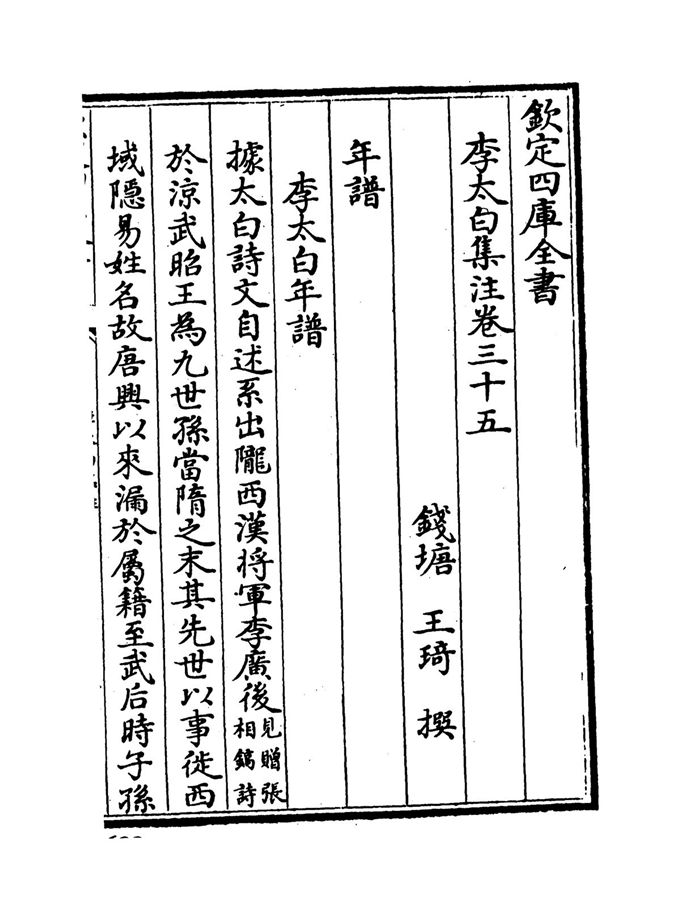 欽定四庫全書
李太白集注卷三十五
錢塘 王琦 撰
年譜
李太白年譜
據太白詩文自述系出隴西漢將軍李廣後見贈張相鎬詩
於涼武昭王為九世孫當隋之末其先世以事徙西
域隱易姓名故唐興以來漏於屬籍至武后時子孫